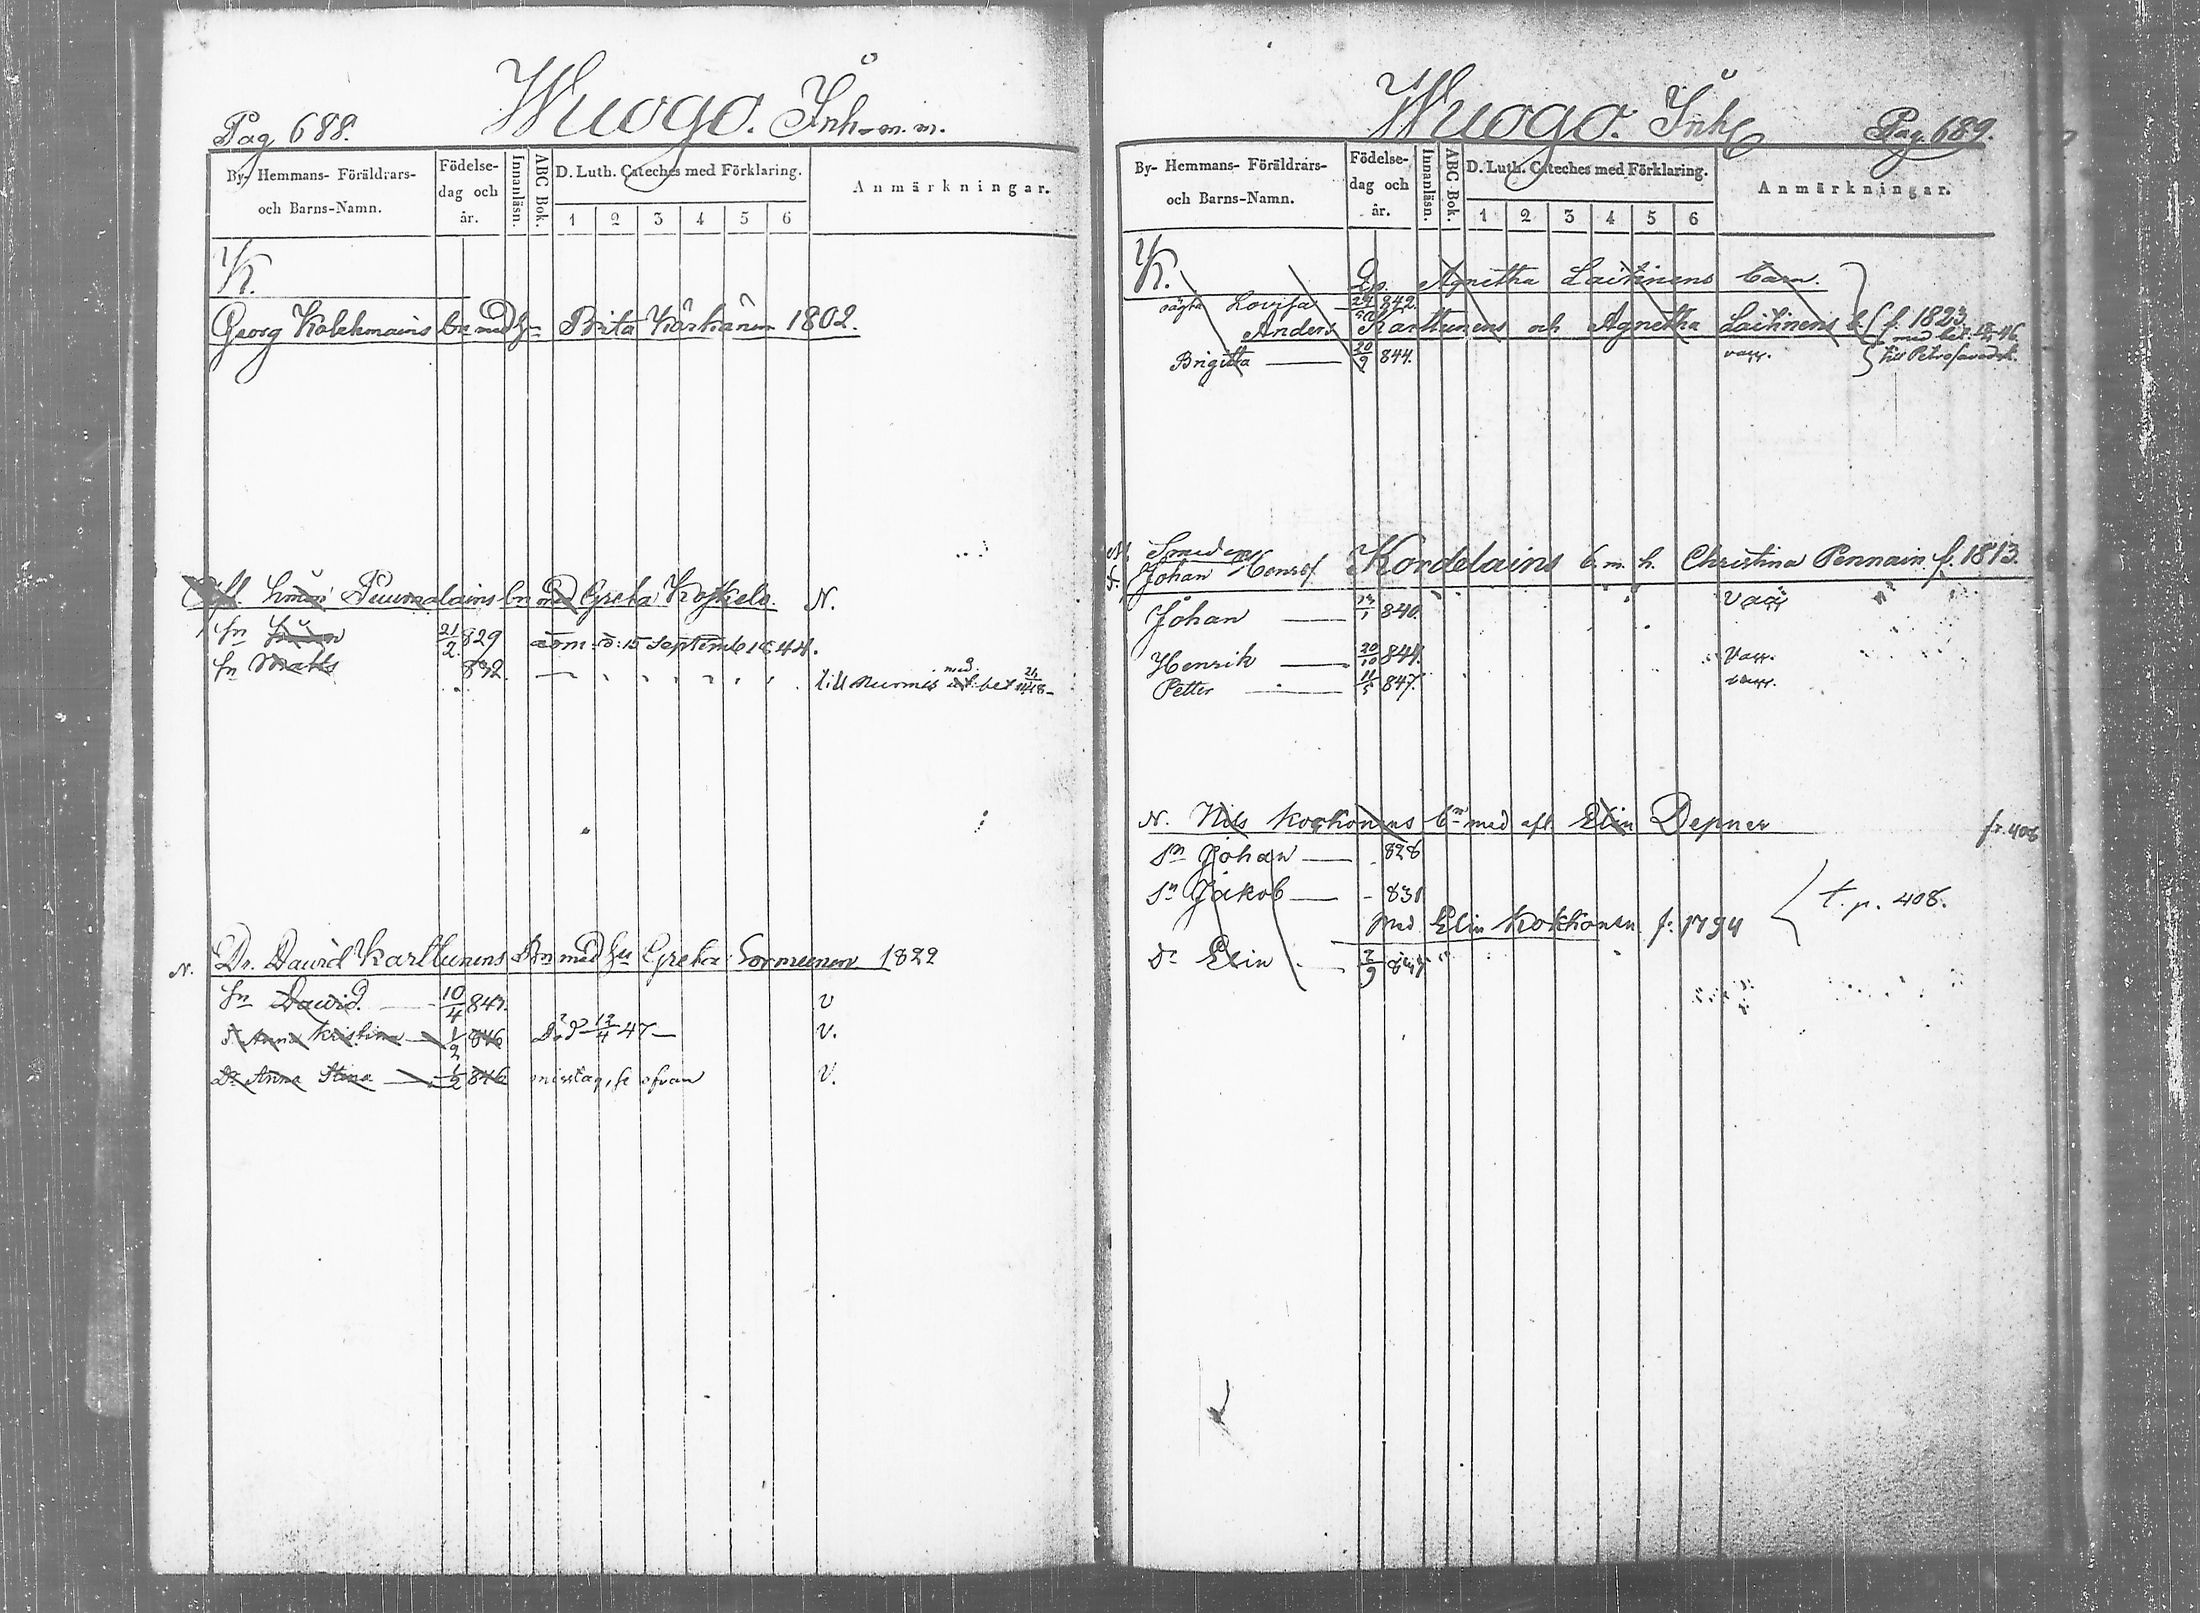 Pag 688.
Wuogo. Inh-m.m.
By- Hemmans- Föräldrars- och Barns-Namn.
Födelse-dag och år.
Innanläsn.
ABC Bok.
D. Luth. Cateches med Förklaring.
1 2 3 4 5 6
Anmärkningar.
K.
Georg Kolehmains bn med hu Brita Kärkänen 1802.
Puumalains bn med Greta Koskelo. N.
sn 21/2 829 adm. d: 15 Septemb 1844.
sn Matts 832. till Nurmes med bet 24
N. Dr. David Karttunens Bn med hu Greta Sormunen 1822
sn Dawid. 10/4 843. v
d Anna Kristina 1/2 846 Död 12/4 47 v.
Dr Anna Stina 1/2 846 misstag, se ofvan v.
Wuogo. Inh
Pag. 689.
By- Hemmans- Föräldrars- och Barns-Namn.
Födelse-dag och år.
Innanläsn.
ABC Bok.
D. Luth. Cateches med Förklaring.
1 2 3 4 5 6
Anmärkningar.
K. Agnetha Laitinens barn.
oägta Lovisa 842
Anders Karttunens och Agnetha Laitinens b. f. 1823
med bet. 46
Brigitta 20/9 844. vacc. till Petrosavodsk.
N. Smeden
Johan Henrs. Kondelains b. m. h. Christina Pennain. f. 1813.
Johan 13/1 840. Vacc
Henrik 20/10 844. Vacc.
Petter 11/5 847. vacc.
N. Nils Kokkonens bn med afl. Elin Depner fr. 408
Sn Johan 828
Sn Jakob 831 t. p. 408.
med Elin Kokkonen f. 1794
Dr Elin 2/9